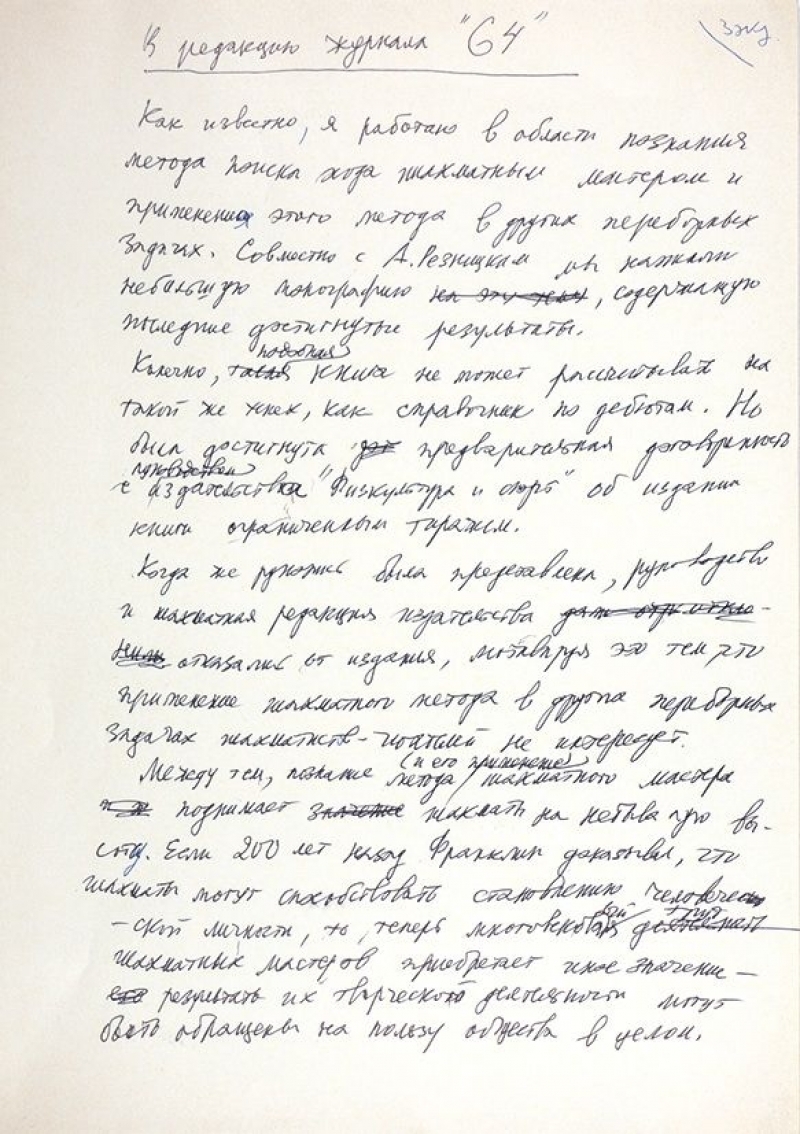 3 экз.
В редакцию журнала "64"
Как известно, я работаю в области познания
метода поиска хода шахматным мастером и
применения этого метода в других переборных
задачах. Совместно с А.Резницким мы написали
небольшую монографию на эту тему, содержащую
последние достигнутые результаты.
подобная
Конечно, такая книга не может рассчитывать на
такой же успех, как справочник по дебютам. Но
была достигнута предварительная договоренность
руководством
с издательства "Физкультура и спорт" об издании
книги ограниченным тиражем.
Когда же рукопись была представлена, руководство
и шахматная редакция издательства
отказались от издания, мотивируя это тем, что
применение шахматного метода в других переборных
задачах шахматистов-читателей не интересует.
(и его применение)
Между тем, познание метода шахматного мастера
поднимает значение шахмат на небывалую вы-
соту. Если 200 лет назад Франклин доказывал, что
шахматы могут способствовать становлению человече-
ской личности, то, теперь многовековой опыт
шахматных мастеров приобретает иное значение –
результаты их творческой деятельности могут
быть обращены на пользу общества в целом.